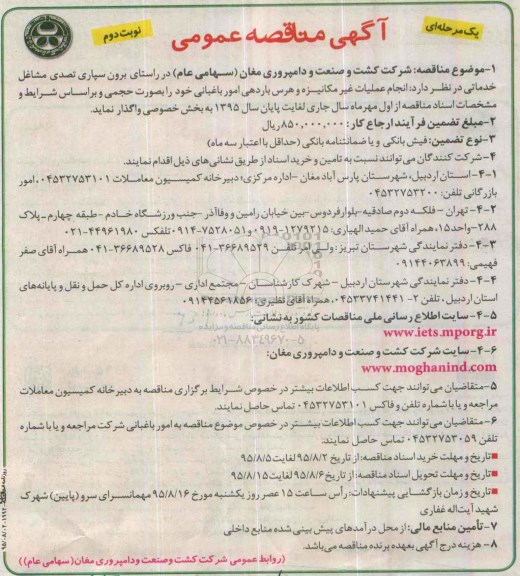 یک مرحله‌ای
آگهی مناقصه عمومی
نوبت دوم
۱-موضوع مناقصه: شرکت کشت و صنعت و دامپروری مغان (سهامی عام) در راستای برون سپاری تصدی مشاغل
خدماتی در نظر دارد: انجام عملیات غیر مکانیزه و هرس باردهی امور باغبانی خود را بصورت حجمی و براساس شرایط و
مشخصات اسناد مناقصه از اول مهرماه سال جاری لغایت پایان سال ۱۳۹۵ به بخش خصوصی واگذار نماید.
۲-مبلغ تضمین فرآیند ارجاع کار: ۸۵۰,۰۰۰,۰۰۰ریال
۳-نوع تضمین: فیش بانکی و یا ضمانتنامه بانکی (حداقل با اعتبار سه ماه)
۴-شرکت کنندگان می‌توانند نسبت به تامین و خرید اسناد از طریق نشانی‌های ذیل اقدام نمایند.
۴-۱- استان اردبیل، شهرستان پارس آباد مغان -اداره مرکزی؛ دبیرخانه کمیسیون معاملات ۰۴۵۳۲۷۵۳۱۰۱، امور
بازرگانی تلفن: ۰۴۵۳۲۷۵۳۲۰۰
۴-۲- تهران - فلکه دوم صادقیه-بلوار فردوس-بین خیابان رامین و وفاآذر -جنب ورزشگاه خادم -طبقه چهارم-پلاک
۲۸۸-واحد۱۵، همراه آقای حمید الهیاری: ۱۲۷۹۲۱۵-۰۹۱۹ و ۷۵۲۸۰۵۱-۰۹۱۴ تلفکس ۴۴۹۶۱۹۸۰-۰۲۱
۴-۳- دفتر نمایندگی شهرستان تبریز: تلفن ۳۶۶۸۹۵۲۹-۰۴۱ فاکس ۳۶۶۸۹۵۲۸-۰۴۱ همراه آقای صفر
فهیمی: ۰۹۱۴۴۰۶۳۸۹۹
۴-۴- دفتر نمایندگی شهرستان اردبیل - شهرک کارشناسان - مجتمع اداری - روبروی اداره کل حمل و نقل و پایانه‌های
استان اردبیل، تلفن ۲- ۰۴۵۳۳۷۴۱۴۴۱، همراه آقای نظیری: ۰۹۱۴۴۵۶۱۸۵۶
۴-۵- سایت اطلاع رسانی ملی مناقصات کشور به نشانی:
پایگاه اطلاع رسانی مناقصه و مزایده
www.iets.mporg.ir
۰۲۱-۸۸۳۴۹۶۷۰-۵
۴-۶-سایت شرکت کشت و صنعت و دامپروری مغان:
www.moghanind.com
۵-متقاضیان می‌توانند جهت کسب اطلاعات بیشتر در خصوص شرایط برگزاری مناقصه به دبیرخانه کمیسیون معاملات
مراجعه و یا با شماره تلفن و فاکس ۰۴۵۳۲۷۵۳۱۰۱ تماس حاصل نمایند.
۶-متقاضیان می‌توانند جهت کسب اطلاعات بیشتر در خصوص موضوع مناقصه به امور باغبانی شرکت مراجعه و یا با شماره
تلفن ۰۴۵۳۲۷۵۳۰۵۹ تماس حاصل نمایند.
تاریخ و مهلت خرید اسناد مناقصه: از تاریخ ۹۵/۸/۲ لغایت ۹۵/۸/۵
تاریخ و مهلت تحویل اسناد مناقصه: از تاریخ ۹۵/۸/۶ لغایت ۹۵/۸/۱۵
تاریخ و زمان بازگشایی پیشنهادات: رأس ساعت ۱۵ عصر روز یکشنبه مورخ ۹۵/۸/۱۶ مهمانسرای سرو (پایین) شهرک
شهید آیت‌اله غفاری
۷-تأمین منابع مالی: از محل درآمدهای پیش بینی شده منابع داخلی
۸- هزینه درج آگهی بعهده برنده مناقصه می‌باشد.
(روابط عمومی شرکت کشت و صنعت و دامپروری مغان (سهامی عام))